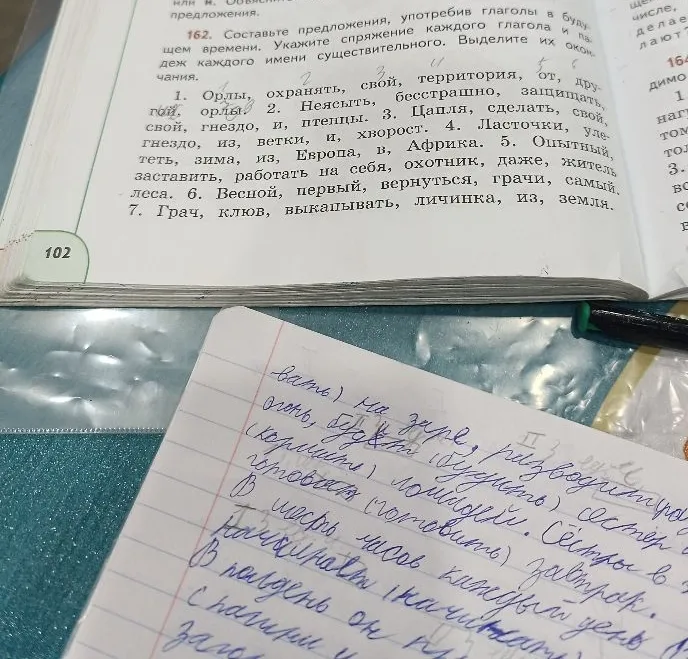 предложения.
162. Составьте предложения, употребив глаголы в буду-
щем времени. Укажите спряжение каждого глагола и па-
деж каждого имени существительного. Выделите их окон-
чания.
1. Орлы, охранять, свой, территория, от, дру-
гой, орлы. 2. Неясыть, бесстрашно, защищать,
свой, гнездо, и, птенцы. 3. Цапля, сделать, свой,
гнездо, из, ветки, и, хворост. 4. Ласточки, уле-
теть, зима, из, Европа, в, Африка. 5. Опытный,
заставить, работать на себя, охотник, даже, житель
леса. 6. Весной, первый, вернуться, грачи, самый.
7. Грач, клюв, выкапывать, личинка, из, земля.
102
числе,
164
димо
1.
наг
том
тол
3.
вать) на заре, разводит
огонь, будет (будить) сестёр
(кормить) лошадей. Сёстры в
готовят (готовить) завтрак.
В шесть часов каждый день
начинает (начинать)
В полдень он